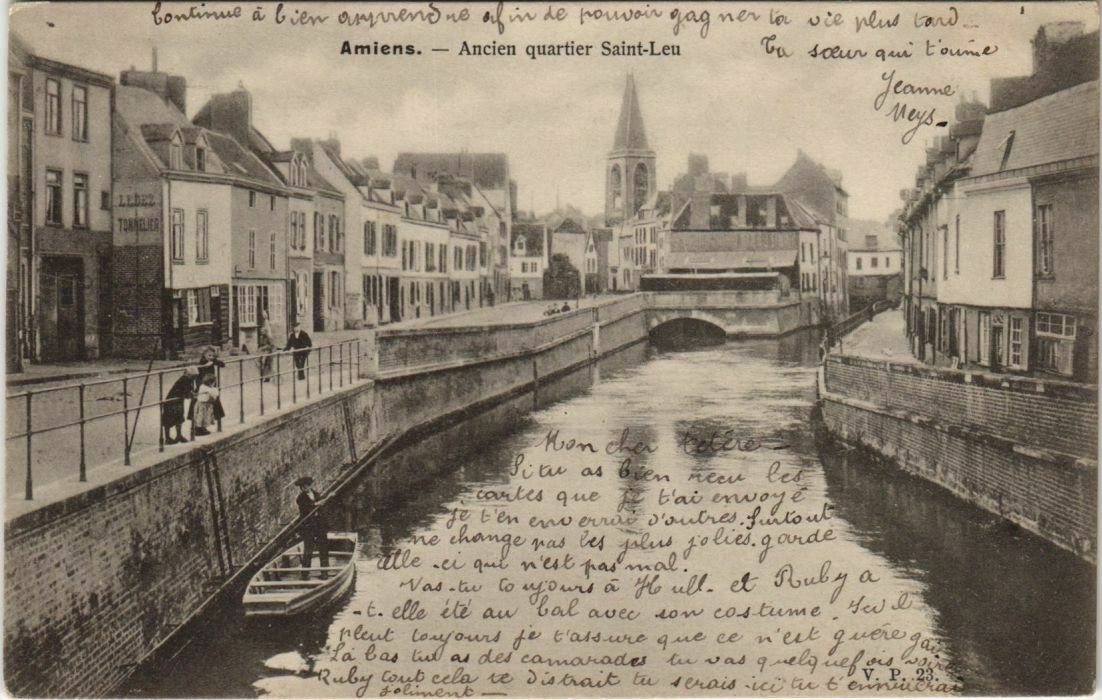 Continue à bien apprendre afin de pouvoir gagner ta vie plus tard
Amiens. — Ancien quartier Saint-Leu
Ta sœur qui t'aime
Jeanne
LEDEZ
TONNELIER
Mon cher
Si tu as bien recu les
cartes que je t'ai envoyé
je t'en enverrai d'autres. Surtout
ne change pas les plus jolies. garde
celle-ci qui n'est pas mal.
Vas-tu toujours à Hull- et Ruby a
-t-elle été au bal avec son costume. Ici il
pleut toujours je t'assure que ce n'est guère gai
Là bas tu as des camarades tu vas quelquefois voir
Ruby tout cela te distrait tu serais ici tu t'ennuierais
joliment —
V. P. 23.